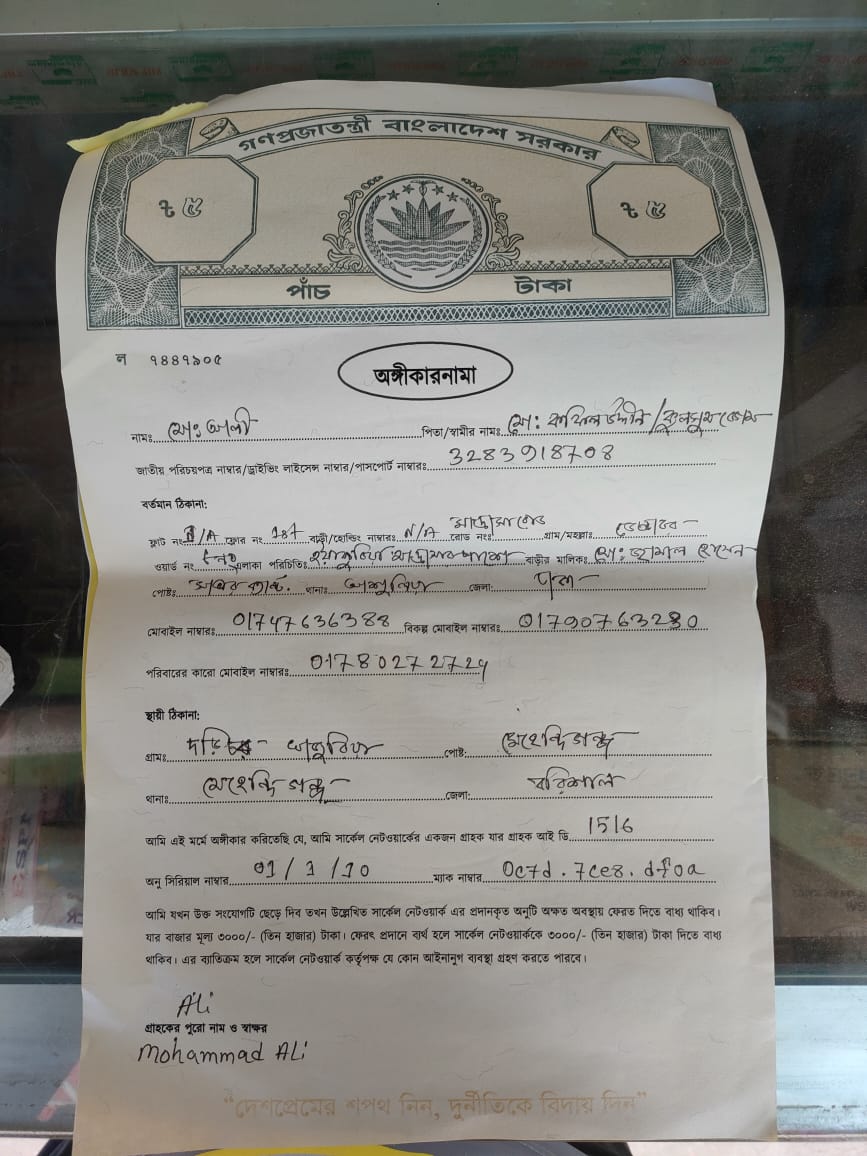 গণপ্রজাতন্ত্রী বাংলাদেশ সরকার
৳ ৫ ৳ ৫
পাঁচ টাকা
ল ৭৪৪৭৯০৫
অঙ্গীকারনামা
নামঃ মোঃ আলী পিতা/স্বামীর নামঃ মো: কফিল উদ্দীন/কুলসুম বেগম
জাতীয় পরিচয়পত্র নাম্বার/ড্রাইভিং লাইসেন্স নাম্বার/পাসপোর্ট নাম্বারঃ 3283918708
বর্তমান ঠিকানা:
ফ্লাট নং N/A ফ্লোর নং 1st বাড়ী/হোল্ডিং নাম্বারঃ N/A রোড নংঃ মাদ্রাসা রোড গ্রাম/মহল্লাঃ
ওয়ার্ড নং এলাকা পরিচিতিঃ মাদ্রাসার পাশে বাড়ীর মালিকঃ মো: জামাল হোসেন
পোষ্টঃ থানাঃ আশুলিয়া জেলা: ঢাকা
মোবাইল নাম্বারঃ 01747636388 বিকল্প মোবাইল নাম্বারঃ 01790763230
পরিবারের কারো মোবাইল নাম্বারঃ 01780272724
স্থায়ী ঠিকানা:
গ্রামঃ পোষ্ট: মেহেন্দিগঞ্জ
থানাঃ মেহেন্দিগঞ্জ জেলা: বরিশাল
আমি এই মর্মে অঙ্গীকার করিতেছি যে, আমি সার্কেল নেটওয়ার্কের একজন গ্রাহক যার গ্রাহক আই ডি 1516
অনু সিরিয়াল নাম্বার 01/1/10 ম্যাক নাম্বার 0c7d.7ce8.df0a
আমি যখন উক্ত সংযোগটি ছেড়ে দিব তখন উল্লেখিত সার্কেল নেটওয়ার্ক এর প্রদানকৃত অনুটি অক্ষত অবস্থায় ফেরত দিতে বাধ্য থাকিব।
যার বাজার মূল্য ৩০০০/- (তিন হাজার) টাকা। ফেরৎ প্রদানে ব্যর্থ হলে সার্কেল নেটওয়ার্ককে ৩০০০/- (তিন হাজার) টাকা দিতে বাধ্য
থাকিব। এর ব্যতিক্রম হলে সার্কেল নেটওয়ার্ক কর্তৃপক্ষ যে কোন আইনানুগ ব্যবস্থা গ্রহণ করতে পারবে।
Ali
গ্রাহকের পুরো নাম ও স্বাক্ষর
Mohammad Ali
“দেশপ্রেমের শপথ নিন, দুর্নীতিকে বিদায় দিন”